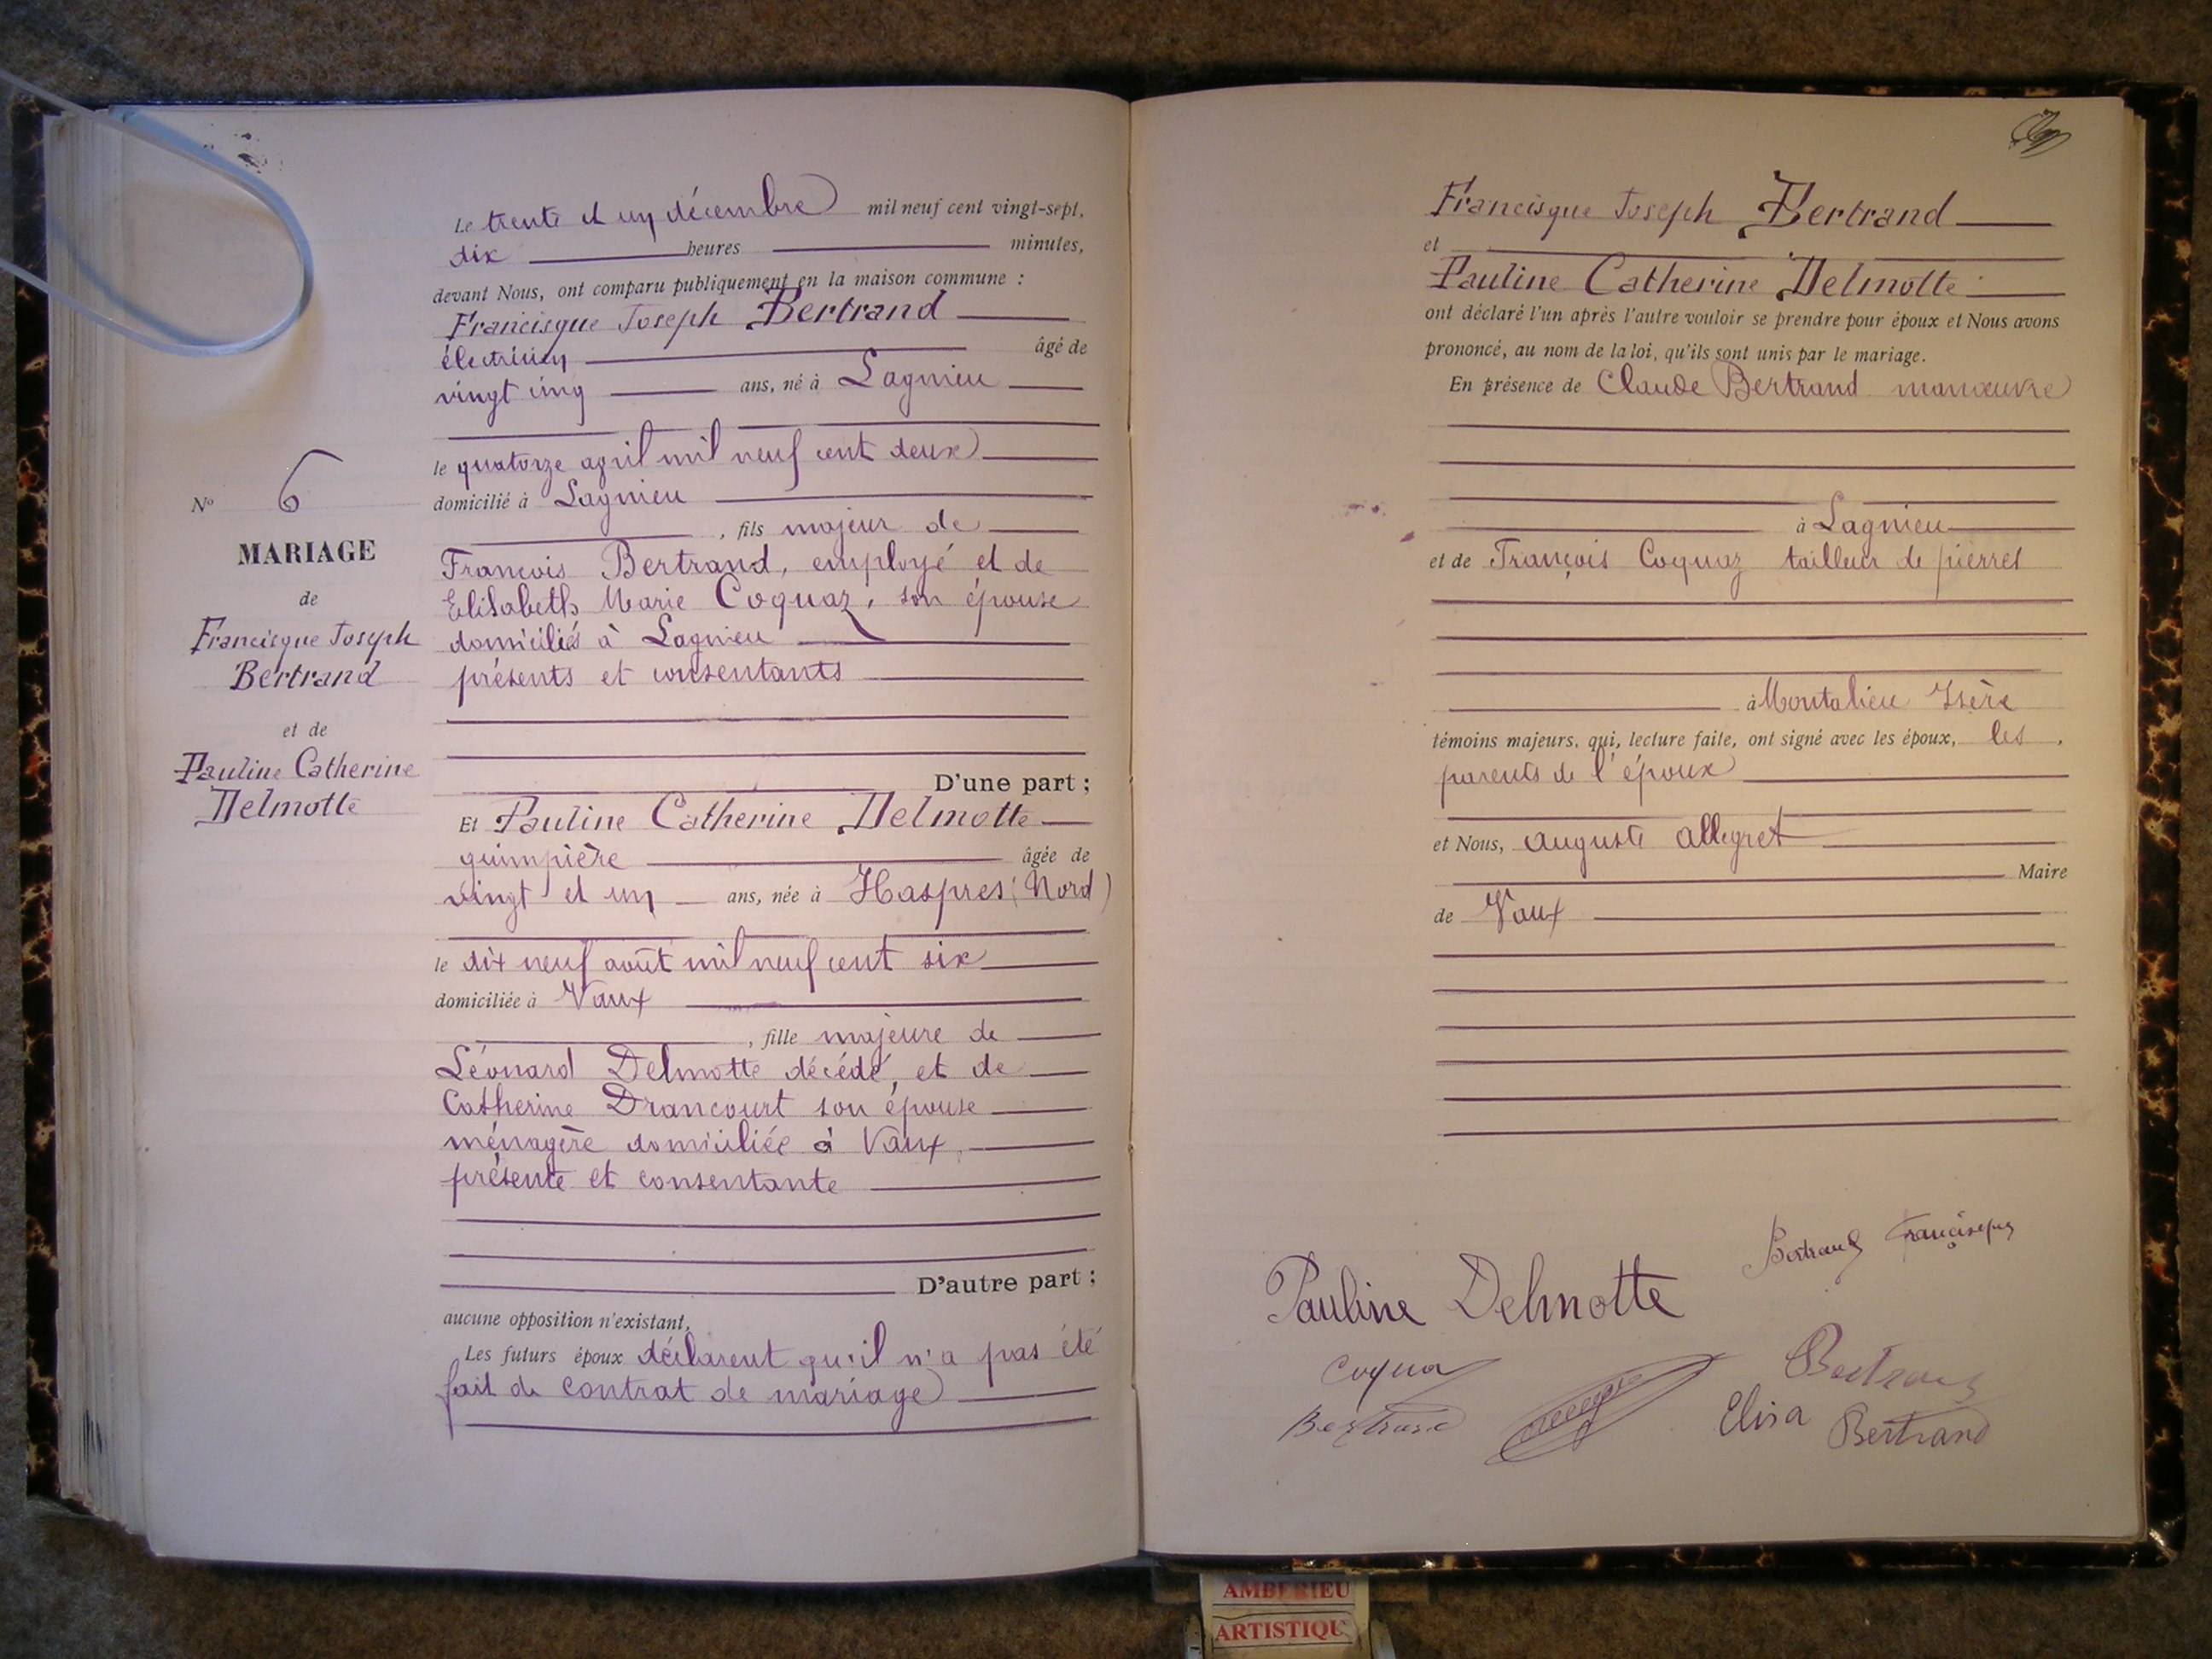 Le trente et un décembre mil neuf cent vingt-sept,
dix heures minutes,
devant Nous, ont comparu publiquement en la maison commune :
Francisque Joseph Bertrand
électricien âgé de
vingt cinq ans, né à Lagnieu
le quatorze avril mil neuf cent deux
domicilié à Lagnieu
, fils majeur de
François Bertrand, employé et de
Elisabeth Marie Coquaz, son épouse
domiciliés à Lagnieu
présents et consentants
D'une part ;
Et Pauline Catherine Delmotte
guimpière âgée de
vingt et un ans, née à Haspres (Nord)
le dix neuf août mil neuf cent six
domiciliée à Vaux
, fille majeure de
Léonard Delmotte décédé, et de
Catherine Drancourt son épouse
ménagère domiciliée à Vaux
présente et consentante
D'autre part ;
aucune opposition n'existant,
Les futurs époux déclarent qu'il n'a pas été
fait de contrat de mariage
N° 6
MARIAGE
de
Francisque Joseph
Bertrand
et de
Pauline Catherine
Delmotte
Francisque Joseph Bertrand
et
Pauline Catherine Delmotte
ont déclaré l'un après l'autre vouloir se prendre pour époux et Nous avons
prononcé, au nom de la loi, qu'ils sont unis par le mariage.
En présence de Claude Bertrand manœuvre
à Lagnieu
et de François Coquaz tailleur de pierres
à Montalieu Isère
témoins majeurs, qui, lecture faite, ont signé avec les époux, les
parents de l'époux
et Nous, Auguste Allegret
Maire
de Vaux
Bertrand Francisque
Pauline Delmotte
Coquaz
Bertrand
Bertrand
Elisa Bertrand
AMBERIEU
ARTISTIQU